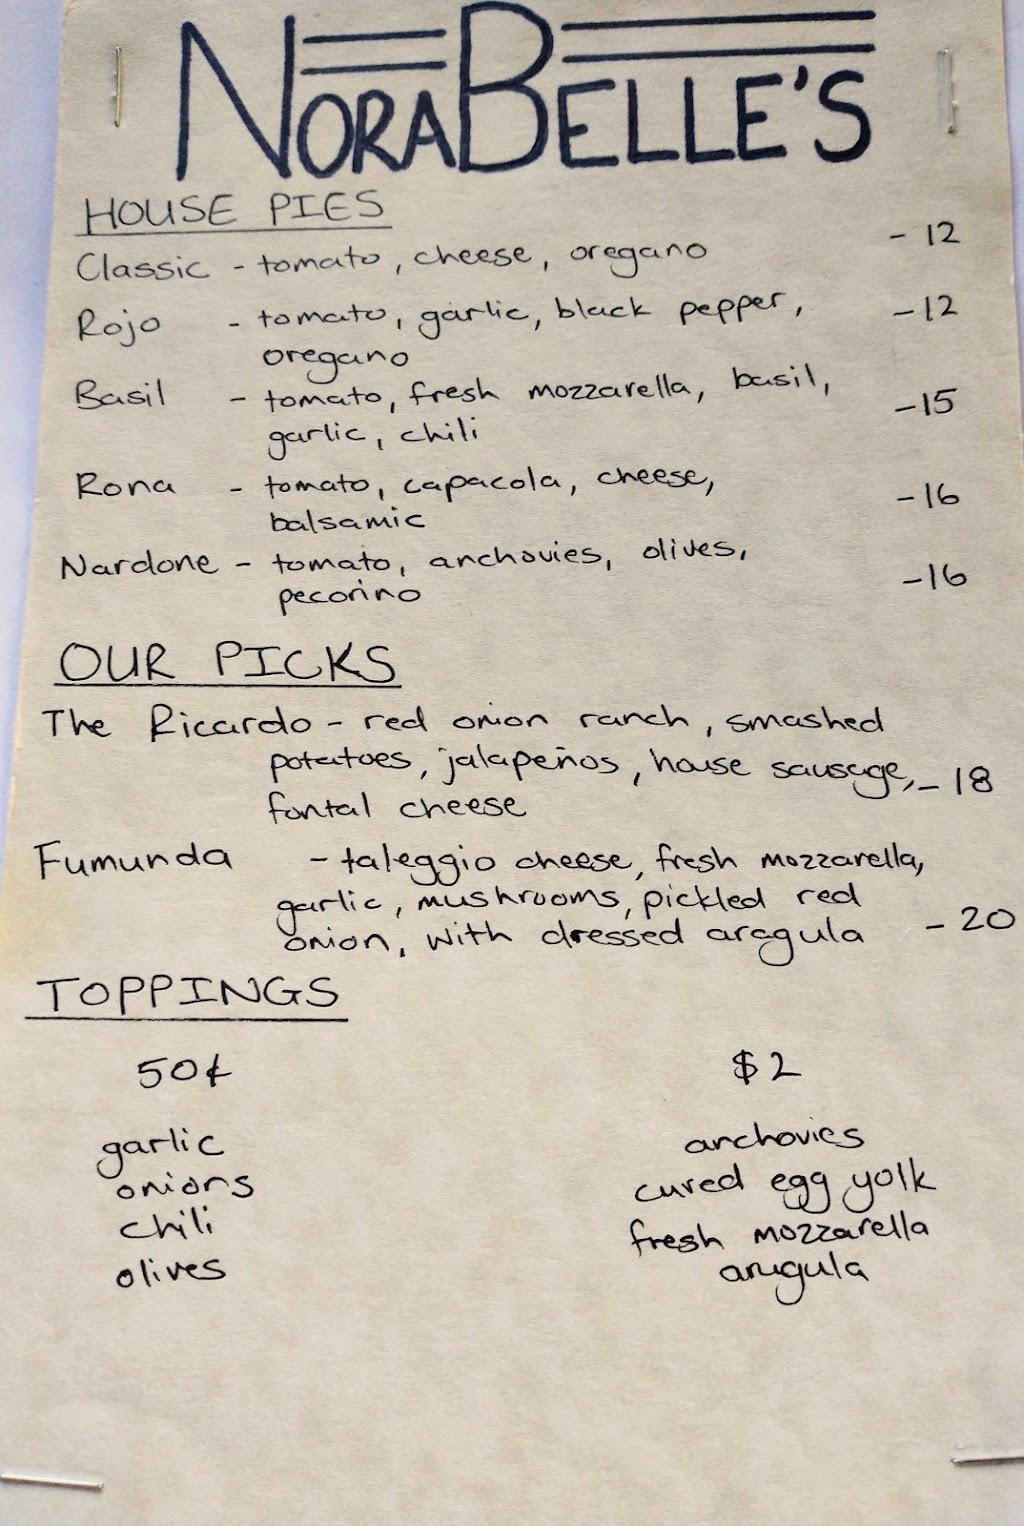 NORABELLE'S
HOUSE PIES
Classic - tomato, cheese, oregano - 12
Rojo - tomato, garlic, black pepper, - 12
oregano
Basil - tomato, fresh mozzarella, basil, - 15
garlic, chili
Rona - tomato, capacola, cheese, - 16
balsamic
Nardone - tomato, anchovies, olives, - 16
pecorino
OUR PICKS
The Ricardo - red onion ranch, smashed
potatoes, jalapeños, house sausage, - 18
fontal cheese
Fumunda - taleggio cheese, fresh mozzarella,
garlic, mushrooms, pickled red
onion, with dressed aragula - 20
TOPPINGS
50¢ $2
garlic anchovies
onions cured egg yolk
chili fresh mozzarella
olives arugula